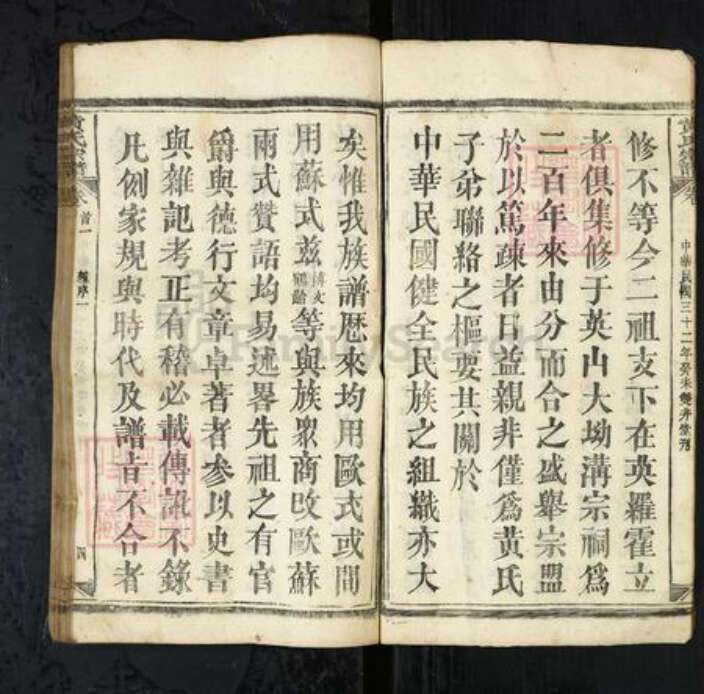 黄氏宗譜
卷
中華民國三十二年癸未雙井堂刋
修不等今二祖支下在英羅霍立
者俱集修于英山大坳溝宗祠爲
二百年來由分而合之盛舉宗盟
於以篤疎者日益親非僅爲黃氏
子弟聯絡之樞要其關於
中華民國健全民族之組織亦大
矣惟我族譜歴來均用歐式或間
用蘇式兹博文鶴齡等與族衆商改歐蘇
兩式贊語均易述畧先祖之有官
爵與德行文章卓著者參以史書
與雜記考正有稽必載傳訛不錄
凡例家規與時代及譜吉不合者
黄氏宗譜
卷首一
四
FamilySearch